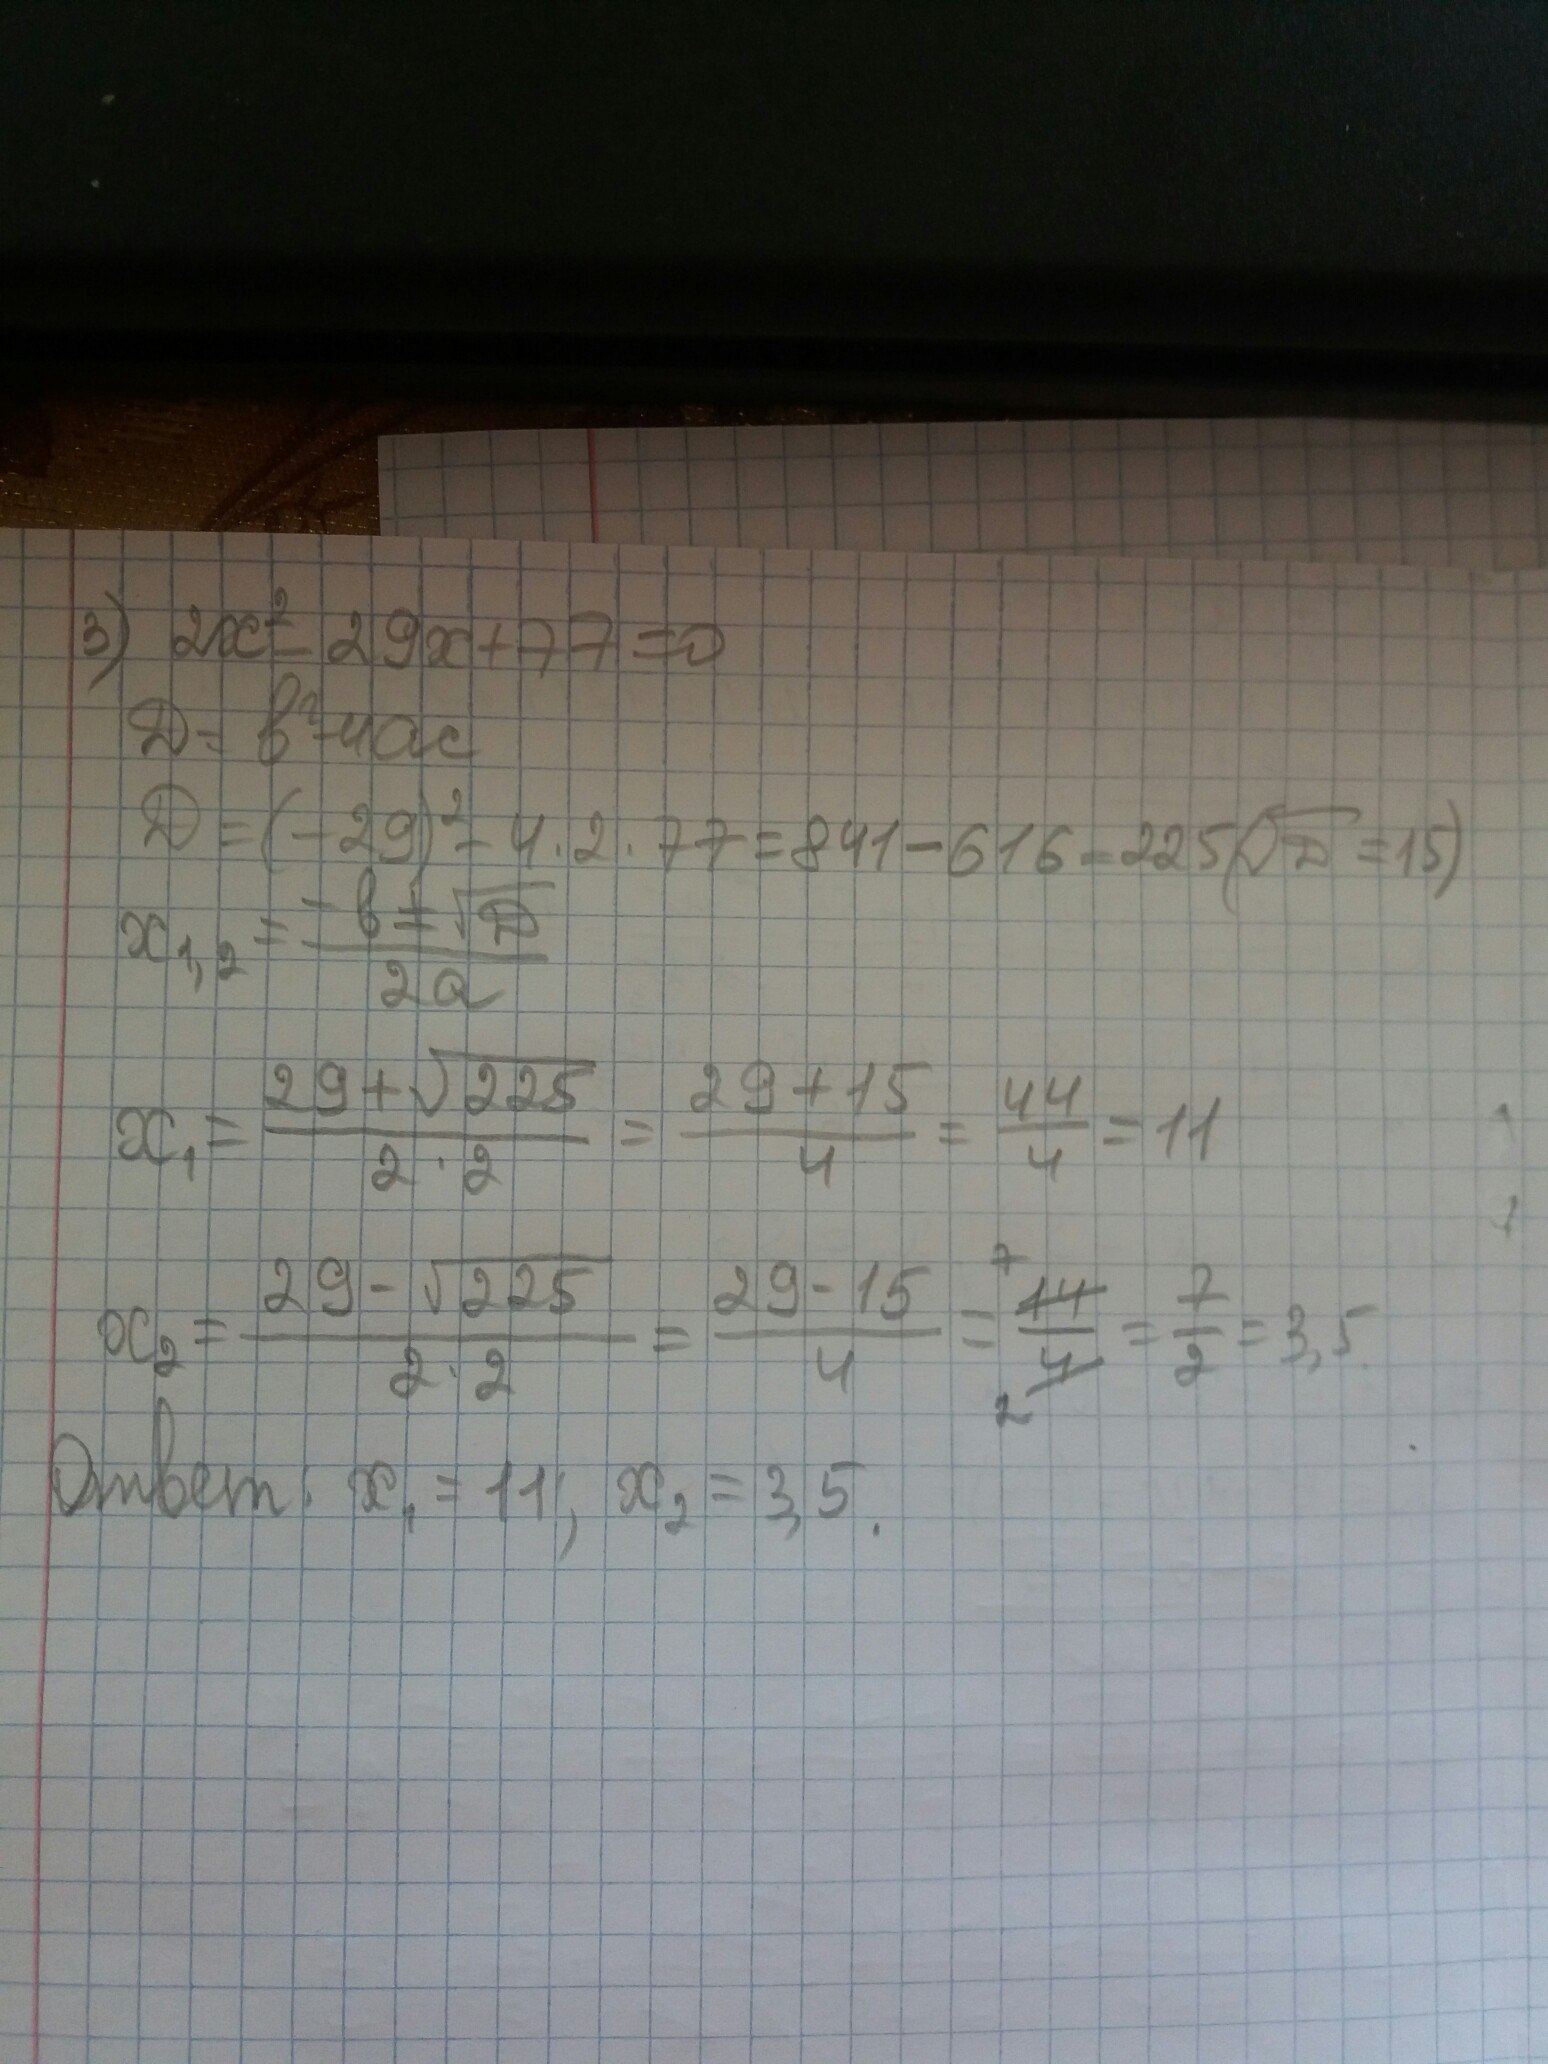 3) 2x² - 29x + 77 = 0
D = b² - 4ac
D = (-29)² - 4 · 2 · 77 = 841 - 616 = 225 (√D = 15)
x₁,₂ = (-b ± √D) / 2a
x₁ = (29 + √225) / (2 · 2) = (29 + 15) / 4 = 44 / 4 = 11
x₂ = (29 - √225) / (2 · 2) = (29 - 15) / 4 = ⁷14 / ₂4 = 7 / 2 = 3,5.
Ответ: x₁ = 11, x₂ = 3,5.